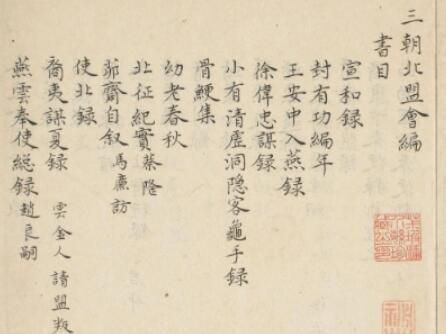 三朝北盟會編
書目
宣和録
封有功編年
王安中入燕録
徐偉忠謀録
小有清虛洞隐客龜手録
骨鯁集
幼老春秋
北征紀實蔡隆
茆齋自叙馬廉訪
使北録
裔夷謀夏録
燕雲奉使總録趙良嗣
雲金人請盟叛